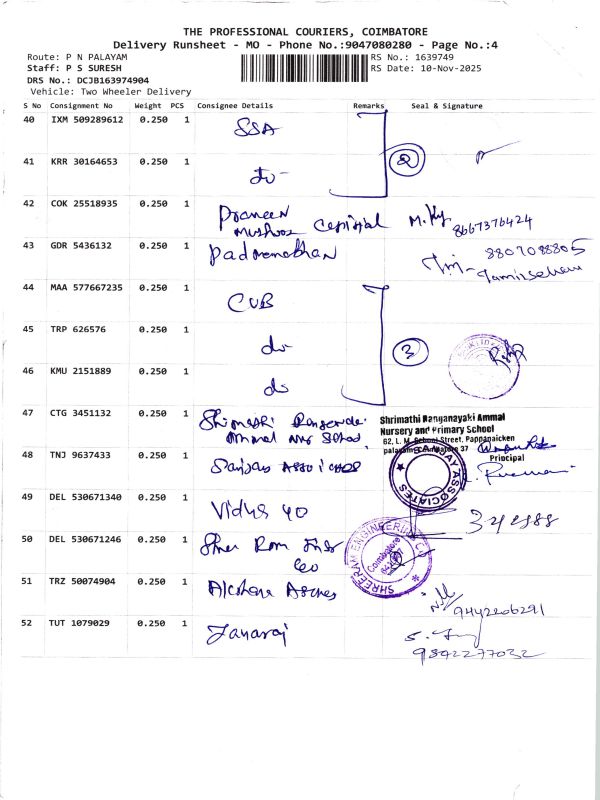 THE PROFESSIONAL COURIERS, COIMBATORE
Delivery Runsheet - MO - Phone No.:9047080280 - Page No.:4
Route: P N PALAYAM
RS No.: 1639749
Staff: P S SURESH
RS Date: 10-Nov-2025
DRS No.: DCJB163974904
Vehicle: Two Wheeler Delivery
S No Consignment No Weight PCS Consignee Details Remarks Seal & Signature
40 IXM 509289612 0.250 1 SSA
41 KRR 30164653 0.250 1 do -
2
42 COK 25518935 0.250 1 Praneen
8667376424
43 GDR 5436132 0.250 1 Padmanabhan
8807088805
Tamilselvan
44 MAA 577667235 0.250 1 CUB
45 TRP 626576 0.250 1 do
3
46 KMU 2151889 0.250 1 do
47 CTG 3451132 0.250 1
Shrimathi Ranganayaki Ammal
Nursery and Primary School
62, L. M. School Street, Pappanaicken
palayam, Coimbatore 37
Principal
48 TNJ 9637433 0.250 1 Sanjay Associates
SANJAY ASSOCIATES
49 DEL 530671340 0.250 1 Vidya
50 DEL 530671246 0.250 1 Shree Ram
SHREERAM ENGINEERING CO
Coimbatore
51 TRZ 50074904 0.250 1
9442206291
52 TUT 1079029 0.250 1 Jayaraj
9892277032